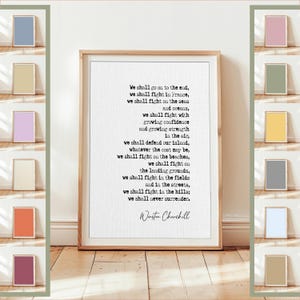 We shall go on to the end,
we shall fight in France,
we shall fight on the seas
and oceans,
we shall fight with
growing confidence
and growing strength
in the air,
we shall defend our island,
whatever the cost may be,
we shall fight on the beaches,
we shall fight on
the landing grounds,
we shall fight in the fields
and in the streets,
we shall fight in the hills;
we shall never surrender.
Winston Churchill